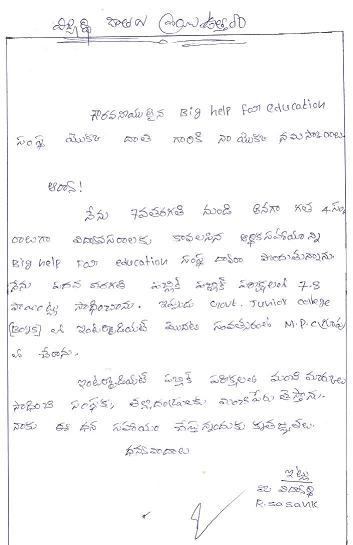 విద్యార్థి బాలుని ప్రియఉత్తరం
గౌరవనీయులైన Big help for education
సంస్థ యొక్క దాత గారికి నా యొక్క నమస్కారాలు
ఆర్యా!
నేను 7వతరగతి నుండి అనగా గత 4 సం
రాలుగా విద్యావసరాలకు కావలసిన ఆర్థికసహాయాన్ని
Big help for education సంస్థ ద్వారా పొందుతున్నాను.
నేను పదవ తరగతి పబ్లిక్ పరీక్షలలో 7.8
పాయింట్లు సాధించాను. ఇప్పుడు Govt. Junior college
(Boys) లో ఇంటర్మీడియట్ మొదటి సంవత్సరంలో M.P.C గ్రూపు
లో చేరాను.
ఇంటర్మీడియట్ పబ్లిక్ పరీక్షలలో మంచి మార్కులు
సాధించి సంస్థకు, తల్లిదండ్రులకు మంచిపేరు తెస్తాను.
నాకు ఈ ధన సహాయం చేస్తున్నందుకు కృతజ్ఞతలు.
ధన్యవాదాలు
ఇట్లు
మీ విద్యార్థి
R.sasank